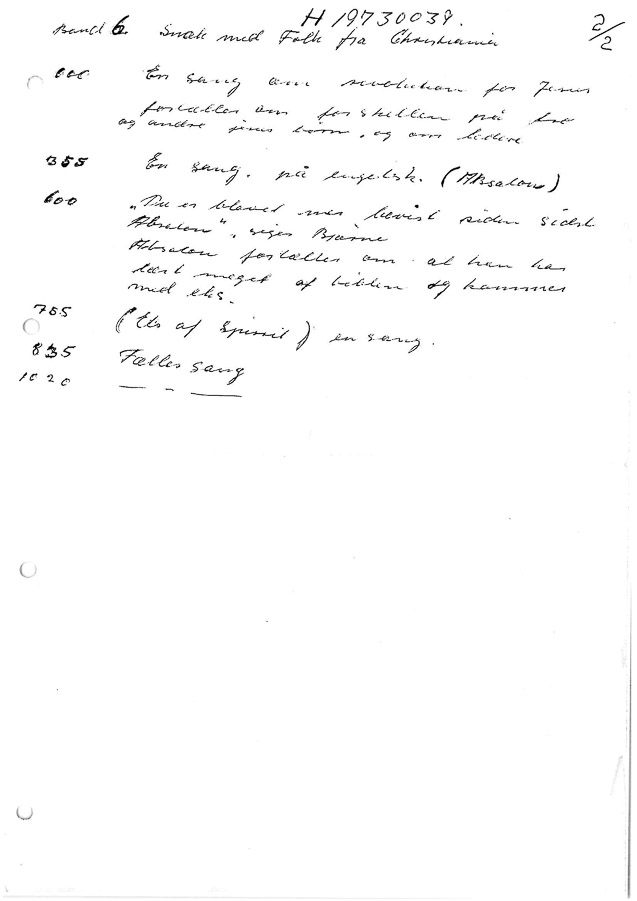 H 19730039.
2/2
Band 6. Snak med Folk fra Christiania
000 En sang om revolution for Jesus
fortæller om forskellen på
og andre jesus børn, og om ledere
355 En sang. på engelsk. (Absalon)
600 "Du er blevet mer bevist siden sidst
Absalon", siger Bjarne
Absalon fortæller om at han har
lært meget af bibelen og kommer
med eks.
755 ( af ) en sang.
835 Fælles sang
1020 — - —